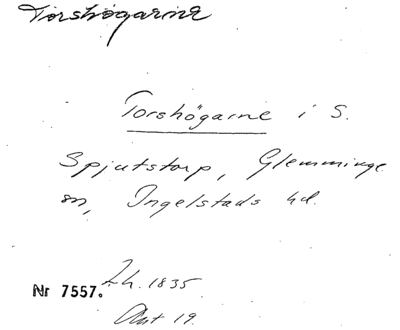 Torshögarne
Torshögarne i S.
Spjutstorp, Glemminge
sn, Ingelstads hd.
Lh. 1835
Nr 7557.
Akt 19.